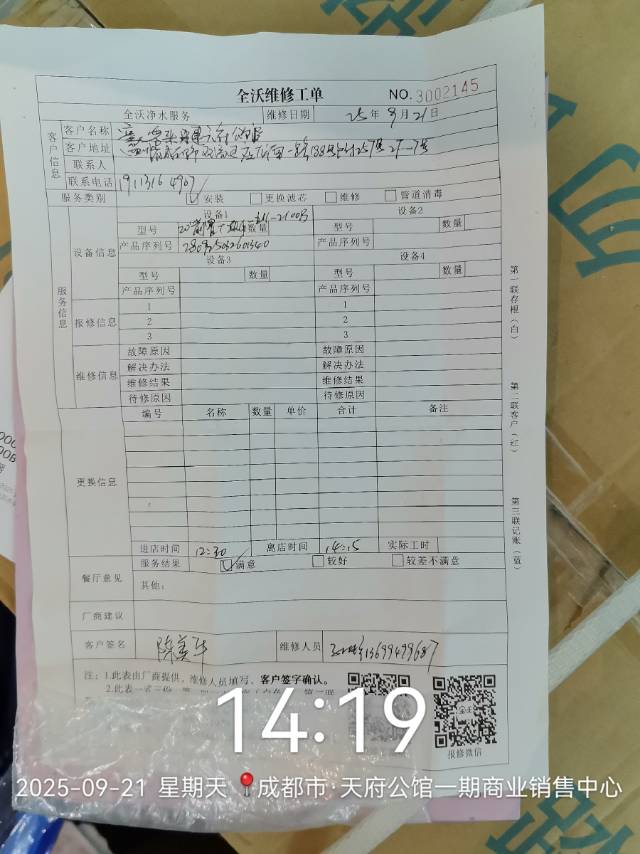 全沃维修工单
NO. 3002145
全沃净水服务 维修日期 25年9月21日
客户信息
客户名称
客户地址
联系人
联系电话 19113164907
服务类别 安装 更换滤芯 维修 管道消毒
服务信息
设备信息 设备1 设备2
型号 数量 型号 数量
产品序列号 产品序列号
设备3 设备4
型号 数量 型号 数量
产品序列号 产品序列号
报修信息 1 1
2 2
3 3
维修信息 故障原因 故障原因
解决办法 解决办法
维修结果 维修结果
待修原因 待修原因
更换信息 编号 名称 数量 单价 合计 备注
进店时间 12:30 离店时间 14:15 实际工时
服务结果 满意 较好 较差不满意
餐厅意见 其他:
厂商建议
客户签名 陈美华 维修人员 13699499687
注:1.此表由厂商提供、维修人员填写、客户签字确认。
2.此表一式三份
报修微信
第一联存根(白)
第二联客户(红)
第三联记账(黄)
14:19
2025-09-21 星期天 成都市·天府公馆一期商业销售中心